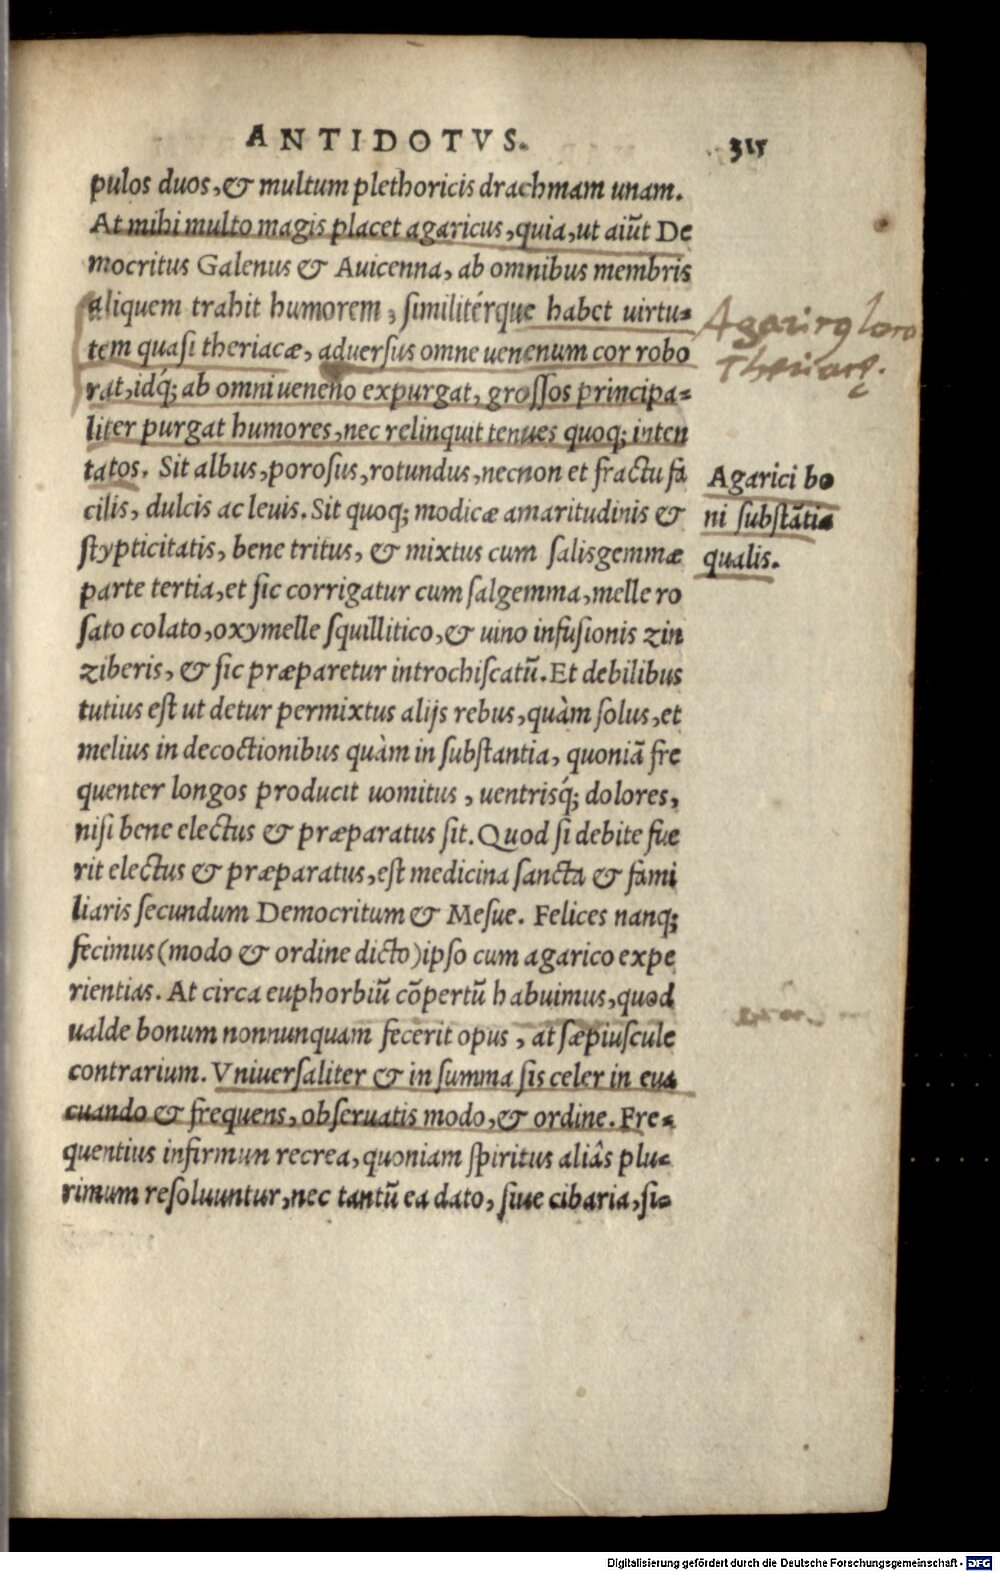 ANTIDOTVS. 315
pulos duos, & multum plethoricis drachmam unam.
At mihi multo magis placet agaricus, quia, ut aiūt De
mocritus Galenus & Auicenna, ab omnibus membris
aliquem trahit humorem, similitérque habet uirtu=
tem quasi theriacæ, aduersus omne uenenum cor robo
rat, idq́; ab omni ueneno expurgat, grossos principa=
liter purgat humores, nec relinquit tenues quoq; inten
tatos. Sit albus, porosus, rotundus, necnon et fractu fa
cilis, dulcis ac leuis. Sit quoq; modicæ amaritudinis &
stypticitatis, bene tritus, & mixtus cum salisgemmæ
parte tertia, et sic corrigatur cum salgemma, melle ro
sato colato, oxymelle squillitico, & uino infusionis zin
ziberis, & sic præparetur introchiscatū. Et debilibus
tutius est ut detur permixtus alijs rebus, quàm solus, et
melius in decoctionibus quàm in substantia, quoniā fre
quenter longos producit uomitus, uentrisq́; dolores,
nisi bene electus & præparatus sit. Quod si debite fue
rit electus & præparatus, est medicina sancta & fami
liaris secundum Democritum & Mesue. Felices nanq;
fecimus (modo & ordine dicto) ipso cum agarico expe
rientias. At circa euphorbiū cōpertū habuimus, quod
ualde bonum nonnunquam fecerit opus, at sæpiuscule
contrarium. Vniuersaliter & in summa sis celer in eua
cuando & frequens, obseruatis modo, & ordine. Fre=
quentius infirmun recrea, quoniam spiritus aliâs plu=
rimum resoluuntur, nec tantū ea dato, siue cibaria, si=
Agaricg loco
Theriacę.
Agarici bo
ni substātia
qualis.
Digitalisierung gefördert durch die Deutsche Forschungsgemeinschaft - DFG